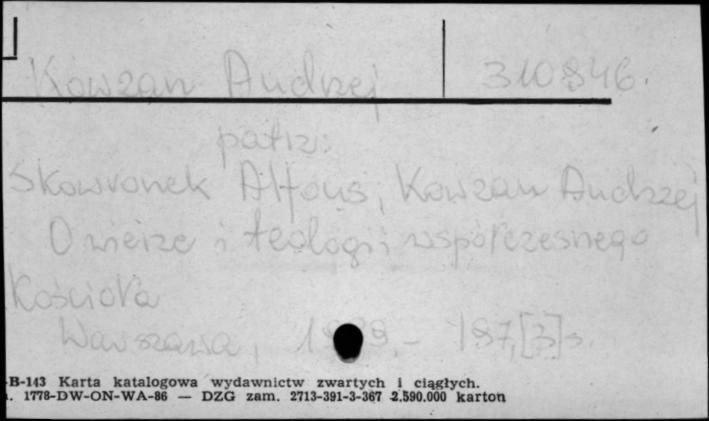 Kowzan Andrzej 310846.
patrz:
Skowronek Alfons, Kowzan Andrzej
O wierze i teologii współczesnego
Kościoła
Warszawa, - 187,[3]s.
B-143 Karta katalogowa wydawnictw zwartych i ciągłych.
1778-DW-ON-WA-86 — DZG zam. 2713-391-3-367 2.590.000 karton